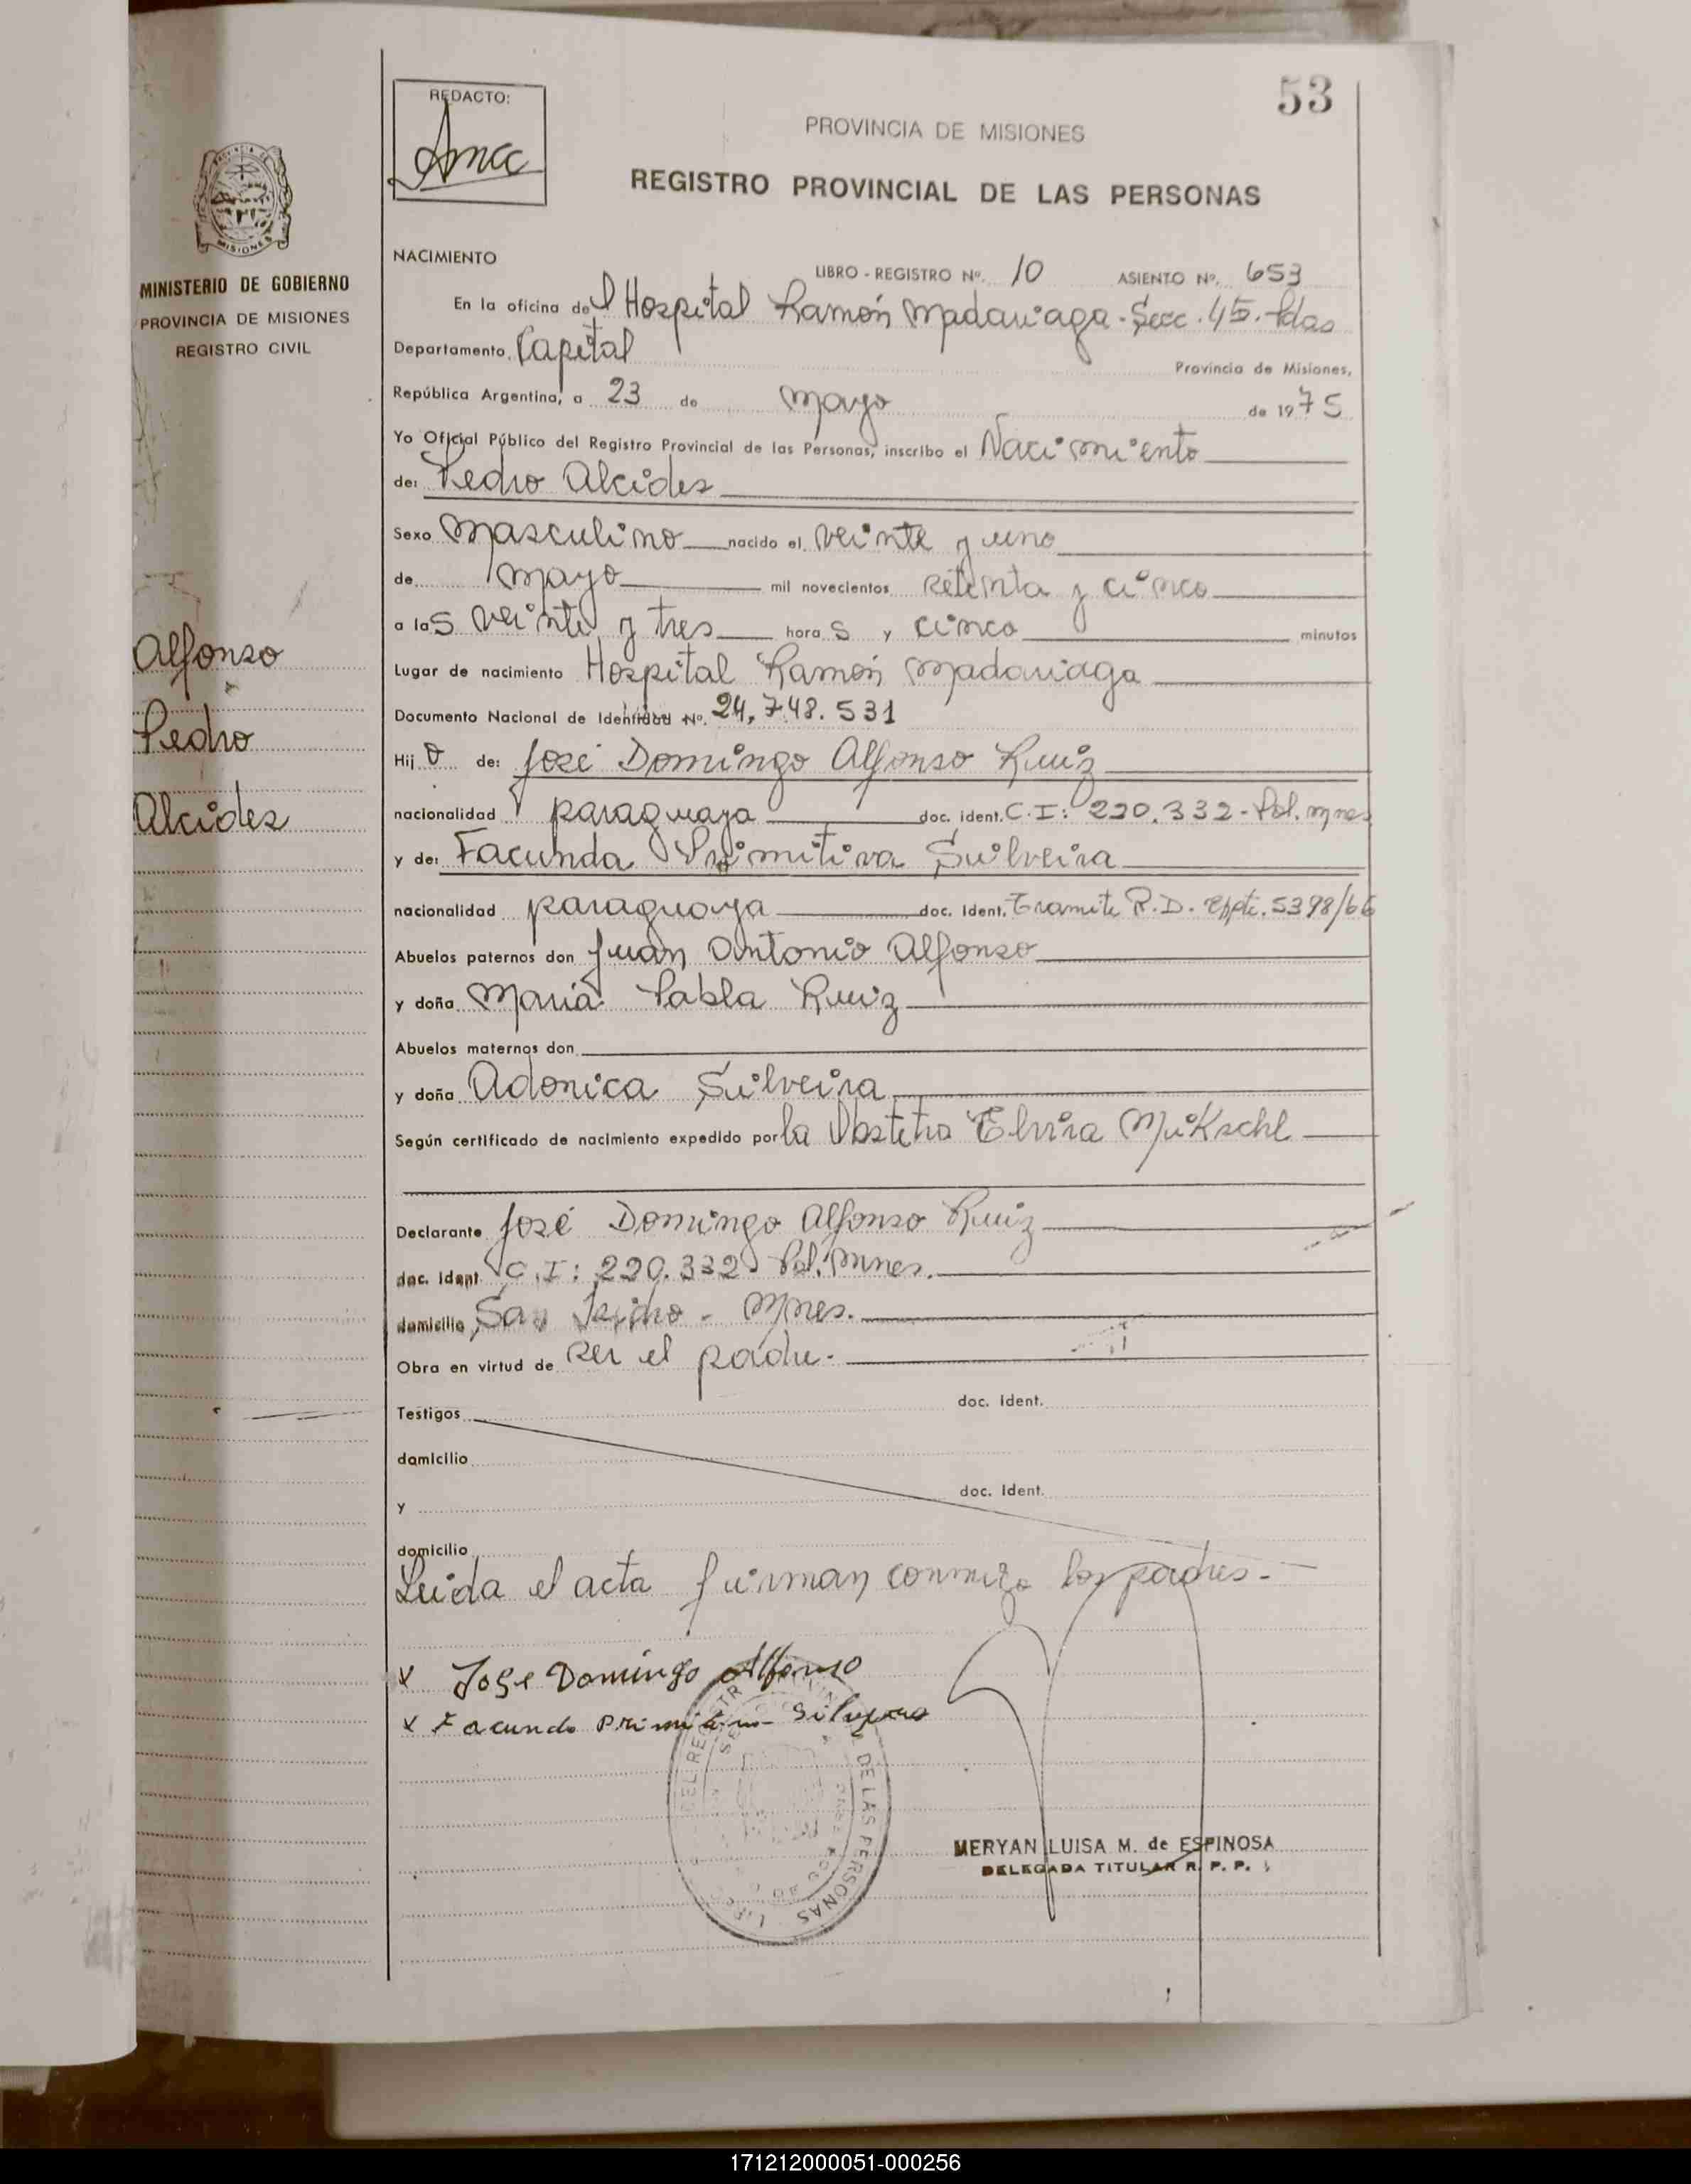 53
REDACTO:
PROVINCIA DE MISIONES
REGISTRO PROVINCIAL DE LAS PERSONAS
MINISTERIO DE GOBIERNO
PROVINCIA DE MISIONES
REGISTRO CIVIL
NACIMIENTO
LIBRO - REGISTRO Nº. 10 ASIENTO Nº. 653
En la oficina del Hospital Ramón Madariaga - Secc. 45. Pdas
Departamento Capital
Provincia de Misiones,
República Argentina, a 23 de mayo de 1975
Yo Oficial Público del Registro Provincial de las Personas, inscribo el Nacimiento
de: Pedro Alcides
Sexo masculino nacido el veinte y uno
de mayo mil novecientos setenta y cinco
a las veinte y tres horas y cinco minutos
Lugar de nacimiento Hospital Ramón Madariaga
Documento Nacional de Identidad Nº. 24.748.531
Hijo de: José Domingo Alfonso Ruiz
nacionalidad paraguaya doc. ident. C.I: 220.332 - Pol. Mnes
y de: Facunda Primitiva Silveira
nacionalidad paraguaya doc. ident. Tramite R.D. Eppte. 5398/66
Abuelos paternos don Juan Antonio Alfonso
y doña María Pabla Ruiz
Abuelos maternos don
y doña Adonica Silveira
Según certificado de nacimiento expedido por la Obstetra Elvira Mikschl
Declarante José Domingo Alfonso Ruiz
doc. ident C.I: 220.332 Pol. Mnes.
domicilio San Isidro - Mnes.
Obra en virtud de ser el padre.
Testigos doc. ident.
domicilio
y doc. ident.
domicilio
Leida el acta firman conmigo los padres.-
Alfonso
Pedro
Alcides
x Jose Domingo Alfonso
x Facunda Primitiva Silveira
DE LAS PERSONAS
MERYAN LUISA M. de ESPINOSA
DELEGADA TITULAR R. P. P.
171212000051-000256